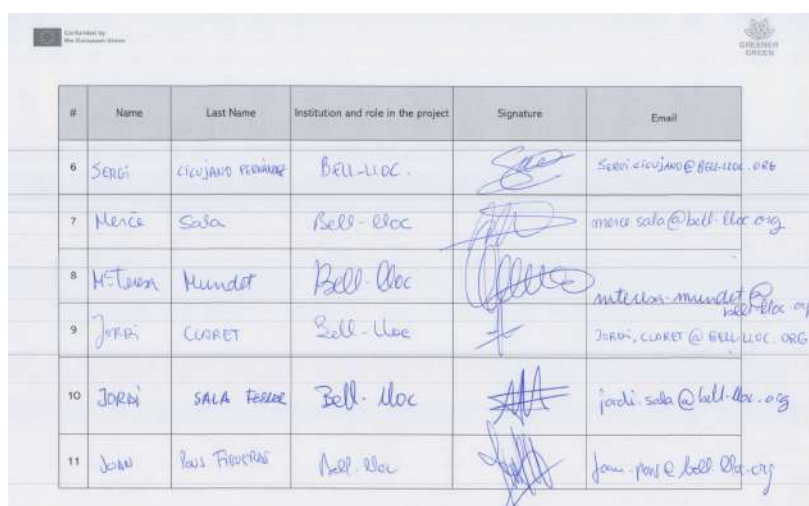 Co-funded by
the European Union
GREENER
GREEN
# Name Last Name Institution and role in the project Signature Email
6 SERGI CIRUJANO FERNÁNDEZ BELL-LLOC. SERGI.CIRUJANO@BELL-LLOC.ORG
7 Mercè Sala Bell-lloc merce.sala@bell-lloc.org
8 Mª Teresa Mundet Bell-lloc mteresa.mundet@
bell-lloc.org
9 JORDI CLARET Bell-lloc JORDI.CLARET@BELL-LLOC.ORG
10 JORDI SALA FERRER Bell-lloc jordi.sala@bell-lloc.org
11 JOAN PONS FIGUERAS Bell-lloc joan.pons@bell-lloc.org